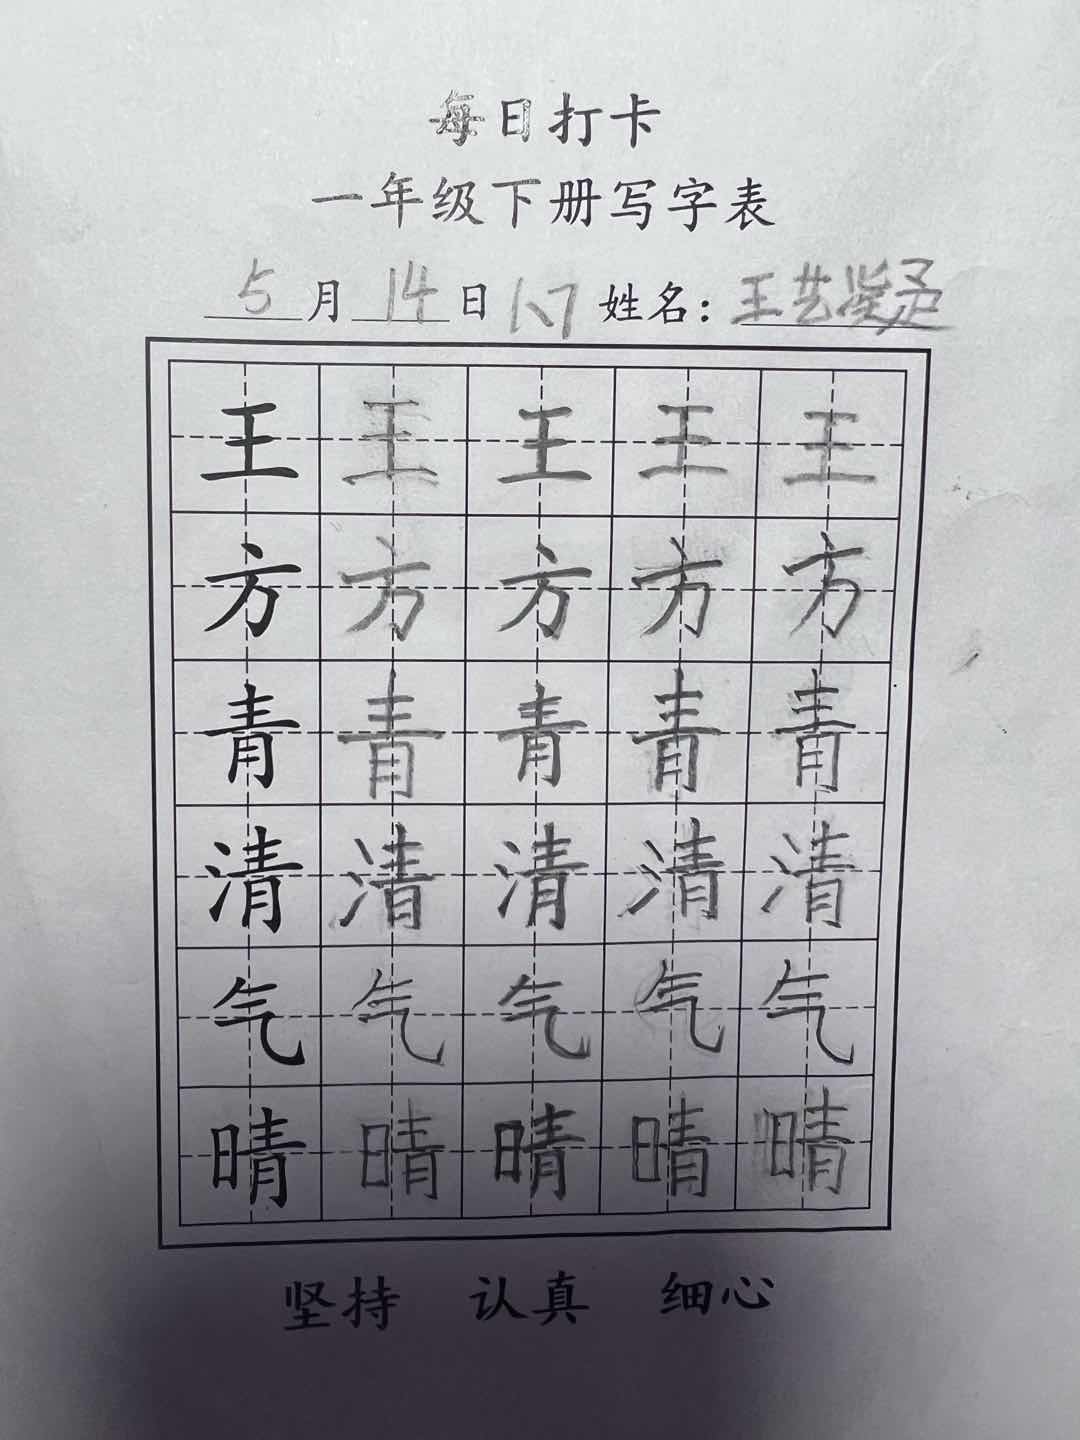 每日打卡
一年级下册写字表
5月14日 1、7 姓名：王艺凝
王王王王王
方方方方方
青青青青青
清清清清清
气气气气气
晴晴晴晴晴
坚持 认真 细心